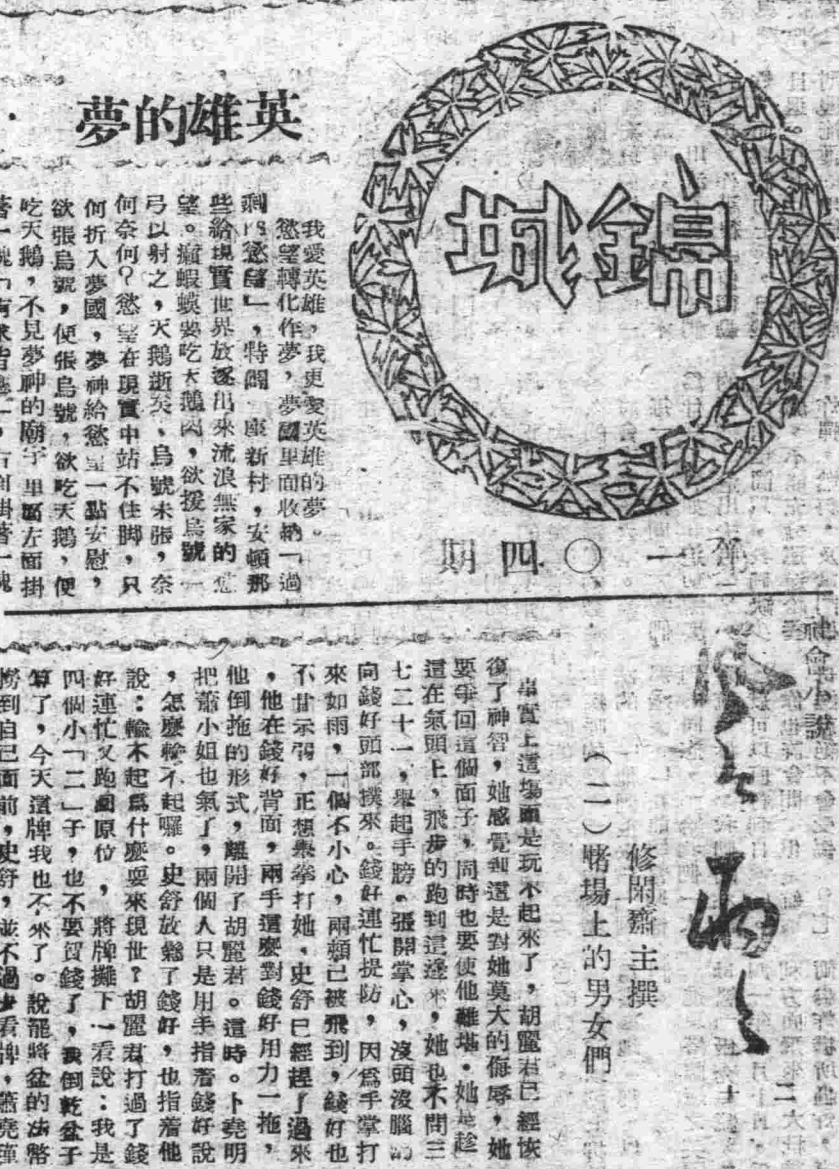 錦城
第一〇四期
英雄的夢
我愛英雄，我更愛英雄的夢。
慾望轉化作夢，夢國里面收納「過
剩的慾望」，特闢一座新村，安頓那
些給現實世界放逐出來流浪無家的慾
望。癩蝦蟆要吃天鵝肉，欲援烏號一
弓以射之，天鵝逝矣，烏號未張，奈
何奈何？慾望在現實中站不住脚，只
何折入夢國，夢神給慾望一點安慰，
欲張烏號，便張烏號，欲吃天鵝，便
吃天鵝，不見夢神的廟宇里面左面掛
著一塊「有求皆應」，右面掛著一塊
社會小說
風風雨雨
二十
修閑齋主撰
（二）賭場上的男女們
事實上這場面是玩不起來了，胡麗君已經恢
復了神智，她感覺到這是對她莫大的侮辱，她
要爭回這個面子，同時也要使他難堪。她是趁
這在氣頭上，飛步的跑到這邊來，她也不問三
七二十一，舉起手膀。張開掌心，沒頭沒腦的
向錢好頭部撲來。錢好連忙提防，因爲手掌打
來如雨，一個不小心，兩頰已被飛到，錢好也
不甘示弱，正想舉拳打她，史舒已經趕了過來
，他在錢好背面，兩手這麽對錢好用力一拖，
他倒拖的形式，離開了胡麗君。這時。卜堯明
把蕭小姐也氣了，兩個人只是用手指着錢好說
，怎麽輸不起囉。史舒放鬆了錢好，也指着他
說：輸不起爲什麽要來現世？胡麗君打過了錢
好連忙又跑囘原位，將牌攤下一看說：我是
四個小「二」子，也不要賀錢了，我倒乾盆子
算了，今天這牌我也不來了。說罷將盆的法幣
撈到自己面前，史舒，並不過去看牌，蕭堯瑾